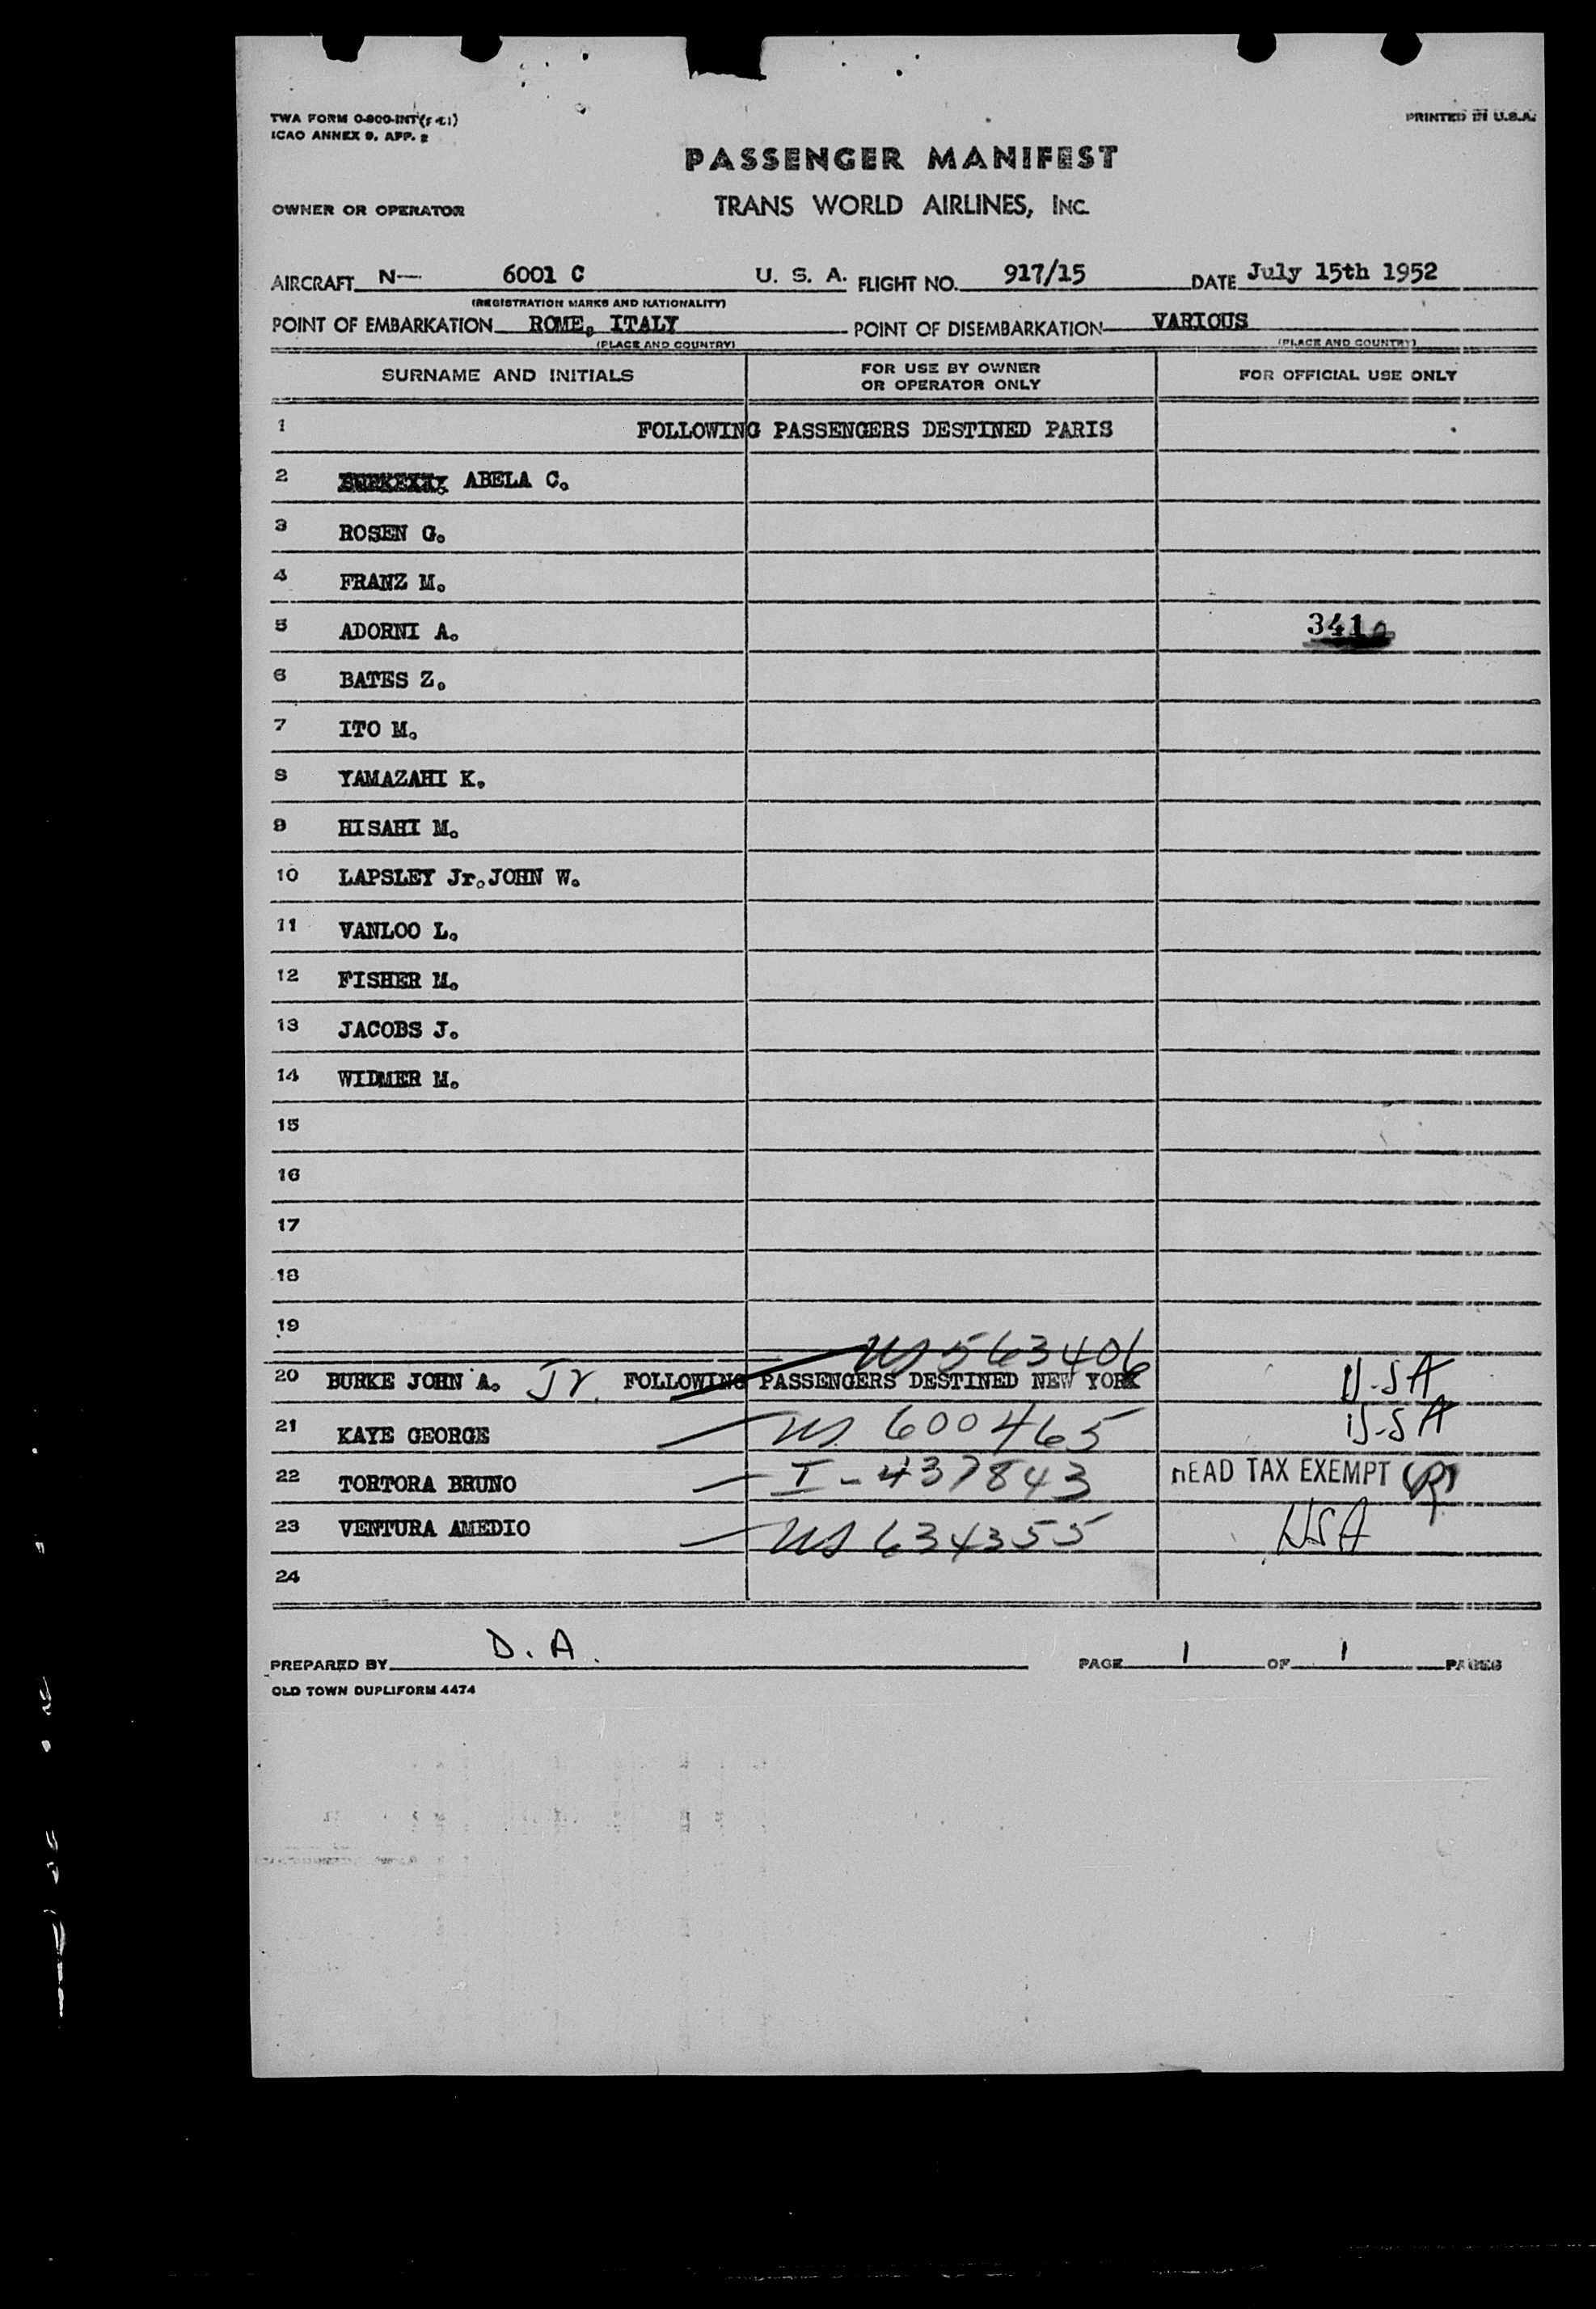 TWA FORM 0-800-INT
ICAO ANNEX 9, APP. 2
PRINTED IN U.S.A.
PASSENGER MANIFEST
OWNER OR OPERATOR
TRANS WORLD AIRLINES, INC.
AIRCRAFT N— 6001 C U. S. A. FLIGHT NO. 917/15 DATE July 15th 1952
(REGISTRATION MARKS AND NATIONALITY)
POINT OF EMBARKATION ROME, ITALY POINT OF DISEMBARKATION VARIOUS
(PLACE AND COUNTRY) (PLACE AND COUNTRY)
SURNAME AND INITIALS FOR USE BY OWNER OR OPERATOR ONLY FOR OFFICIAL USE ONLY
1 FOLLOWING PASSENGERS DESTINED PARIS
2 ABELA C.
3 ROSEN G.
4 FRANZ M.
5 ADORNI A. 341
6 BATES Z.
7 ITO M.
8 YAMAZAHI K.
9 HISAHI M.
10 LAPSLEY Jr.JOHN W.
11 VANLOO L.
12 FISHER M.
13 JACOBS J.
14 WIDMER M.
15
16
17
18
19
US 563406
20 BURKE JOHN A. Jr. FOLLOWING PASSENGERS DESTINED NEW YORK U.SA
21 KAYE GEORGE US 600465 U.SA
22 TORTORA BRUNO I-437843 HEAD TAX EXEMPT
23 VENTURA AMEDIO US 634355 USA
24
PREPARED BY D. A. PAGE 1 OF 1 PAGES
OLD TOWN DUPLIFORM 4474